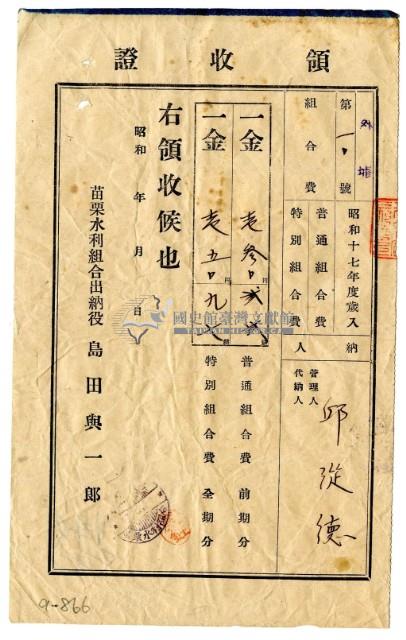 領收證
外埔
第一、號
組合費
昭和十七年度歲入
普通組合費
特別組合費
納人
管理人
代納人
邱從德
一金
圓
普通組合費 前期分
一金
圓
特別組合費 全期分
右領收候也
昭和 年 月 日
苗栗水利組合出納役 島田與一郎
國史館臺灣文獻館
a-866